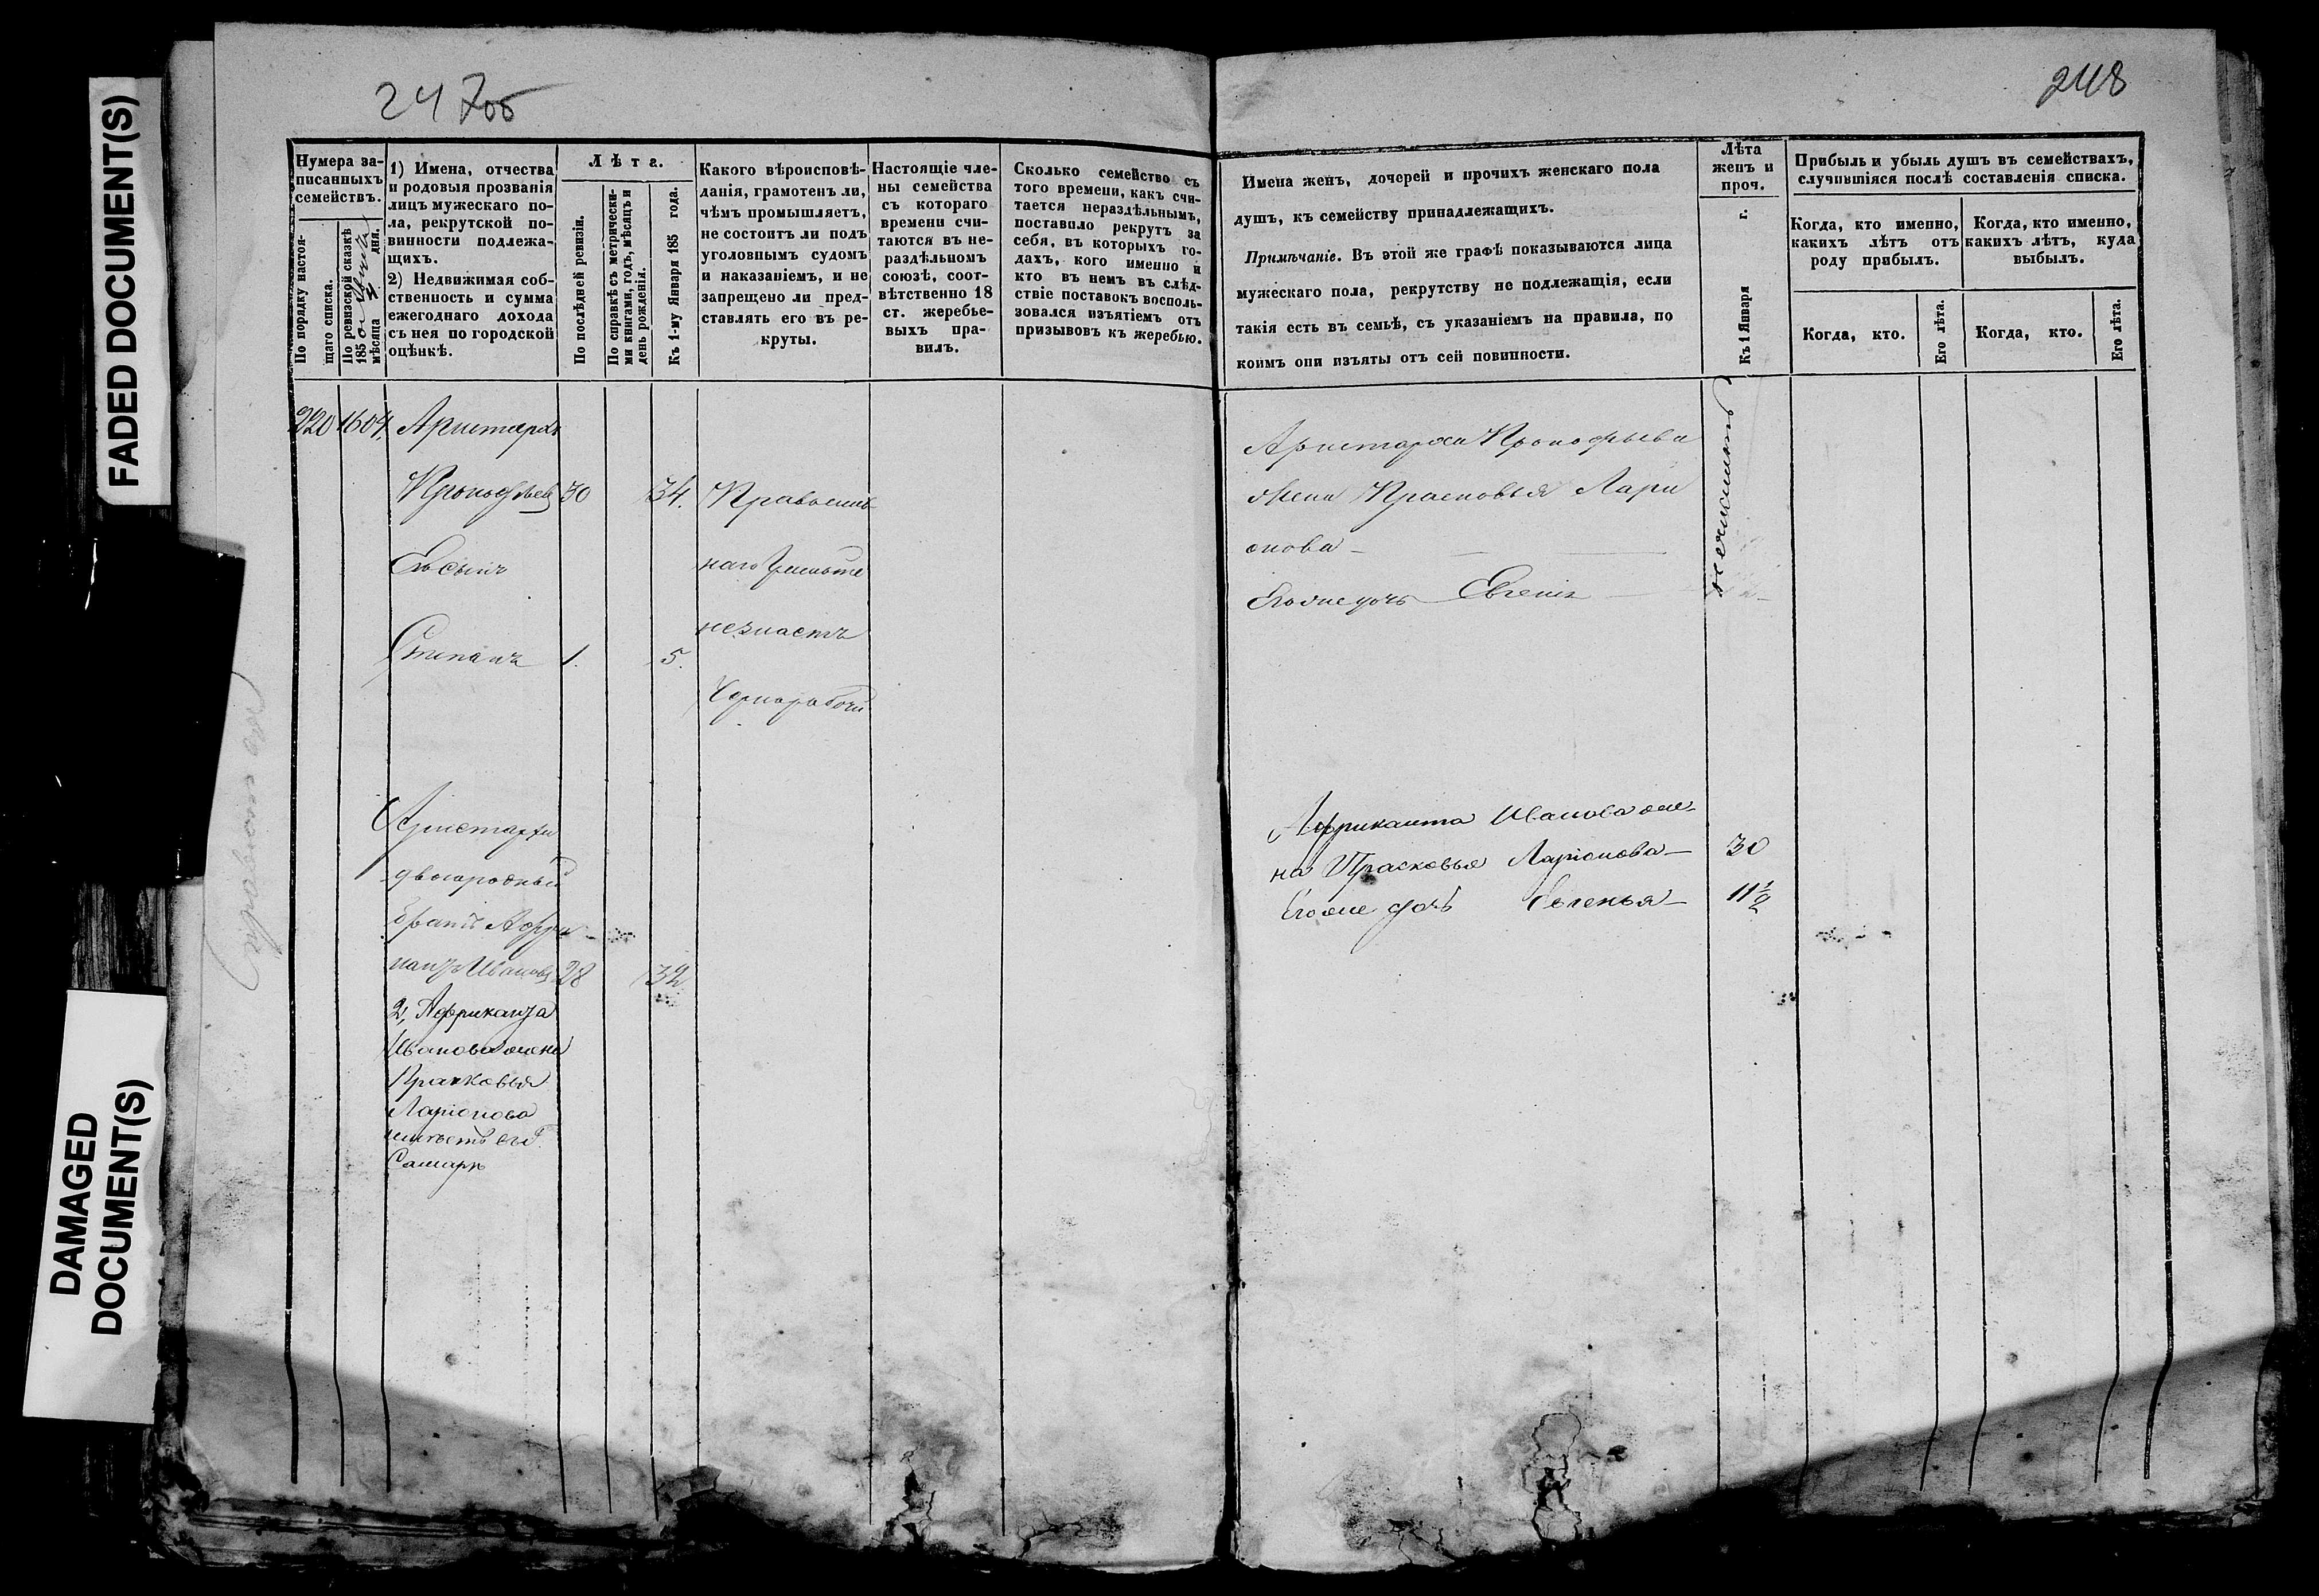 FADED DOCUMENT(S)
DAMAGED
DOCUMENT(S)
247об
Нумера за-
писанныхъ
семействъ.
По порядку настоя-
щаго списка.
По ревизской сказкѣ
185
мѣсяца дня.
1) Имена, отчества
и родовыя прозванія
лицъ мужескаго по-
ла, рекрутской по-
винности подлежа-
щихъ.
2) Недвижимая соб-
ственность и сумма
ежегоднаго дохода
съ нея по городской
оцѣнкѣ.
Лѣта.
По послѣдней ревизіи.
По справкѣ съ метрически-
ми книгами, годъ, мѣсяцъ и
день рожденія.
Къ 1-му Января 185 года.
Какого вѣроисповѣ-
данія, грамотенъ ли,
чѣмъ промышляетъ,
не состоитъ ли подъ
уголовнымъ судомъ
и наказаніемъ, и не
запрещено ли пред-
ставлять его въ ре-
круты.
Настоящіе чле-
ны семейства
съ котораго
времени счи-
таются въ не-
раздѣльномъ
союзѣ, соот-
вѣтственно 18
ст. жеребье-
выхъ пра-
вилъ.
Сколько семейство съ
того времени, какъ счи-
тается нераздѣльнымъ,
поставило рекрутъ за
себя, въ которыхъ го-
дахъ, кого именно и
кто въ немъ въ слѣд-
ствіе поставокъ восполь-
зовался изъятіемъ отъ
призывовъ къ жеребью.
220 1604. Аристархъ
Прокофьевъ 30 34. Православ
Его сынъ наго грамоте
незнаетъ
Степанъ 1. 5.
Чернорабочій
Аристарха
двоюродный
братъ Афри
канъ Ивановъ 28 32
2, Африканта
Иванова жена
Прасковья
Ларіонова
Самарѣ
248
Имена женъ, дочерей и прочихъ женскаго пола
душъ, къ семейству принадлежащихъ.
Примѣчаніе. Въ этой же графѣ показываются лица
мужескаго пола, рекрутству не подлежащія, если
такія есть въ семьѣ, съ указаніемъ на правила, по
коимъ они изъяты отъ сей повинности.
Лѣта
женъ и
проч.
Къ 1 Января г.
Прибыль и убыль душъ въ семействахъ,
случившіяся послѣ составленія списка.
Когда, кто именно,
какихъ лѣтъ отъ
роду прибылъ.
Когда, кто именно,
какихъ лѣтъ, куда
выбылъ.
Когда, кто.
Его лѣта.
Когда, кто.
Его лѣта.
Аристарха Прокофьева
жена Прасковья Лари
онова
Его же дочь Евгенія
Африканта Иванова же-
на Прасковья Ларіонова 30
Его же дочь Евгенья 11 1/2